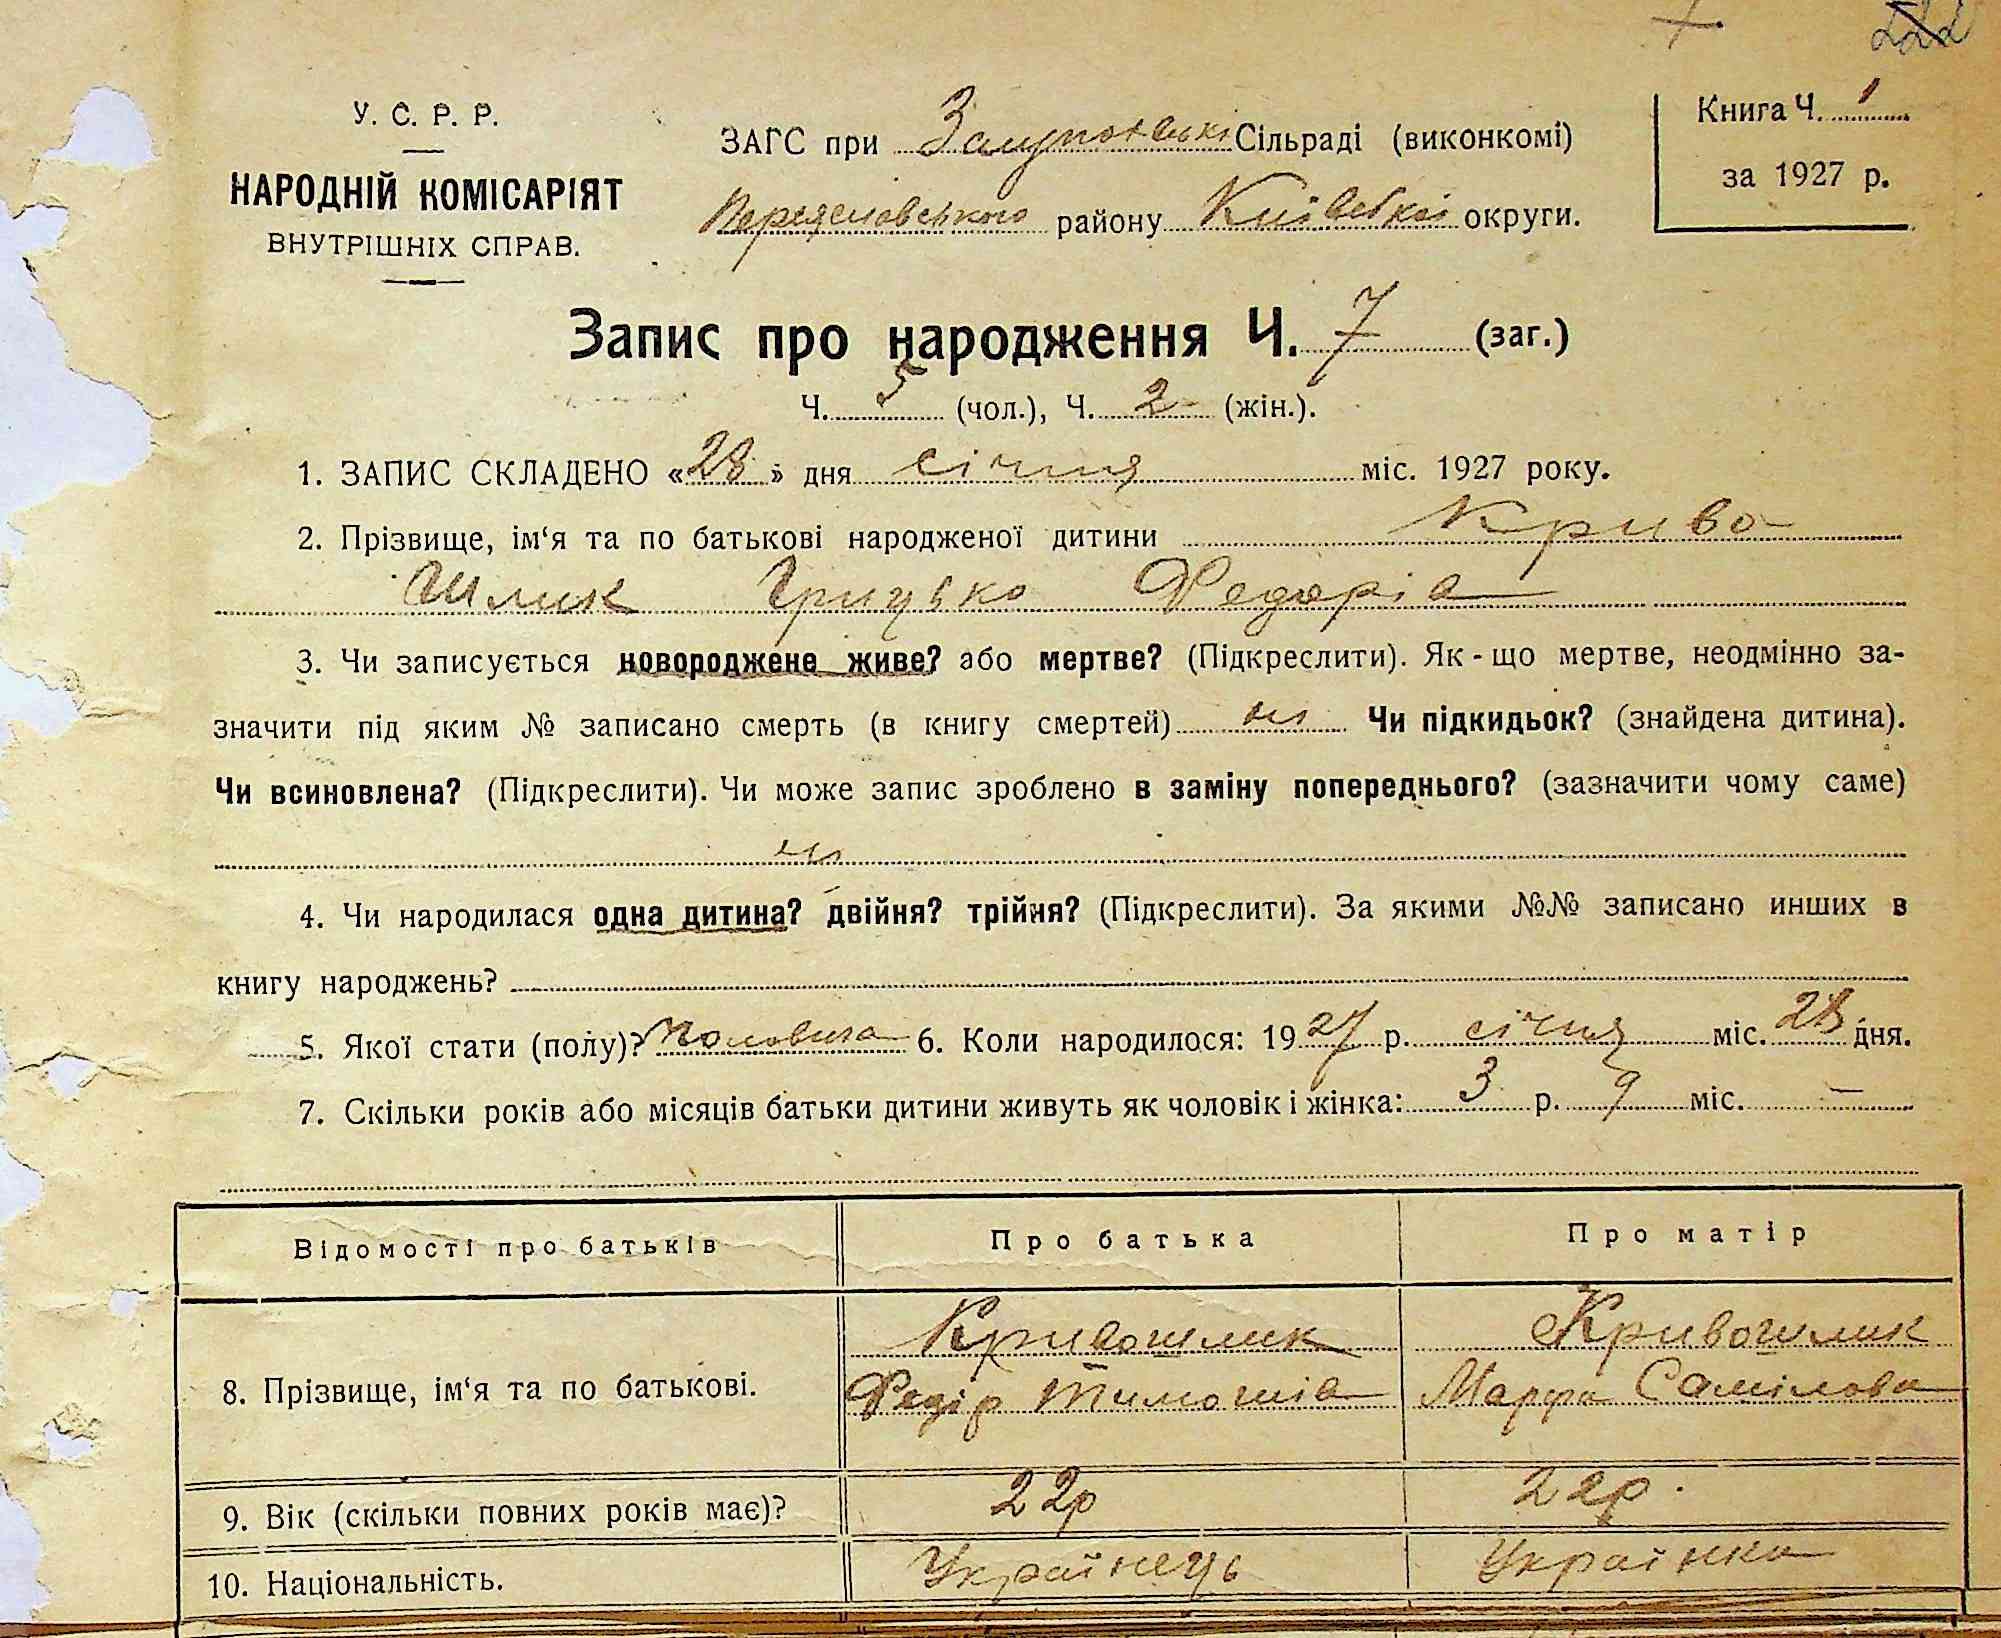 222
У. С. Р. Р.
НАРОДНІЙ КОМІСАРІЯТ
ВНУТРІШНІХ СПРАВ.
ЗАГС при Сільраді (виконкомі)
Переяславського району Київської округи.
Книга Ч. 1
за 1927 р.
Запис про народження Ч. 7 (заг.)
Ч. 5 (чол.), Ч. 2 (жін.).
1. ЗАПИС СКЛАДЕНО «28» дня січня міс. 1927 року.
2. Прізвище, ім‘я та по батькові народженої дитини Криво
Шлик Грицько Федоріа
3. Чи записується новороджене живе? або мертве? (Підкреслити). Як-що мертве, неодмінно за-
значити під яким № записано смерть (в книгу смертей) Чи підкидьок? (знайдена дитина).
Чи всиновлена? (Підкреслити). Чи може запис зроблено в заміну попереднього? (зазначити чому саме)
4. Чи народилася одна дитина? двійня? трійня? (Підкреслити). За якими №№ записано инших в
книгу народжень?
5. Якої стати (полу)? 6. Коли народилося: 1927 р. січня міс. 28 дня.
7. Скільки років або місяців батьки дитини живуть як чоловік і жінка: 3 р. 9 міс. —
Відомості про батьків Про батька Про матір
8. Прізвище, ім‘я та по батькові. Кривошлик Кривошлик
Федір Тимошіа Марфа Самілова
9. Вік (скільки повних років має)? 22р 22р.
10. Національність. Українець Українка